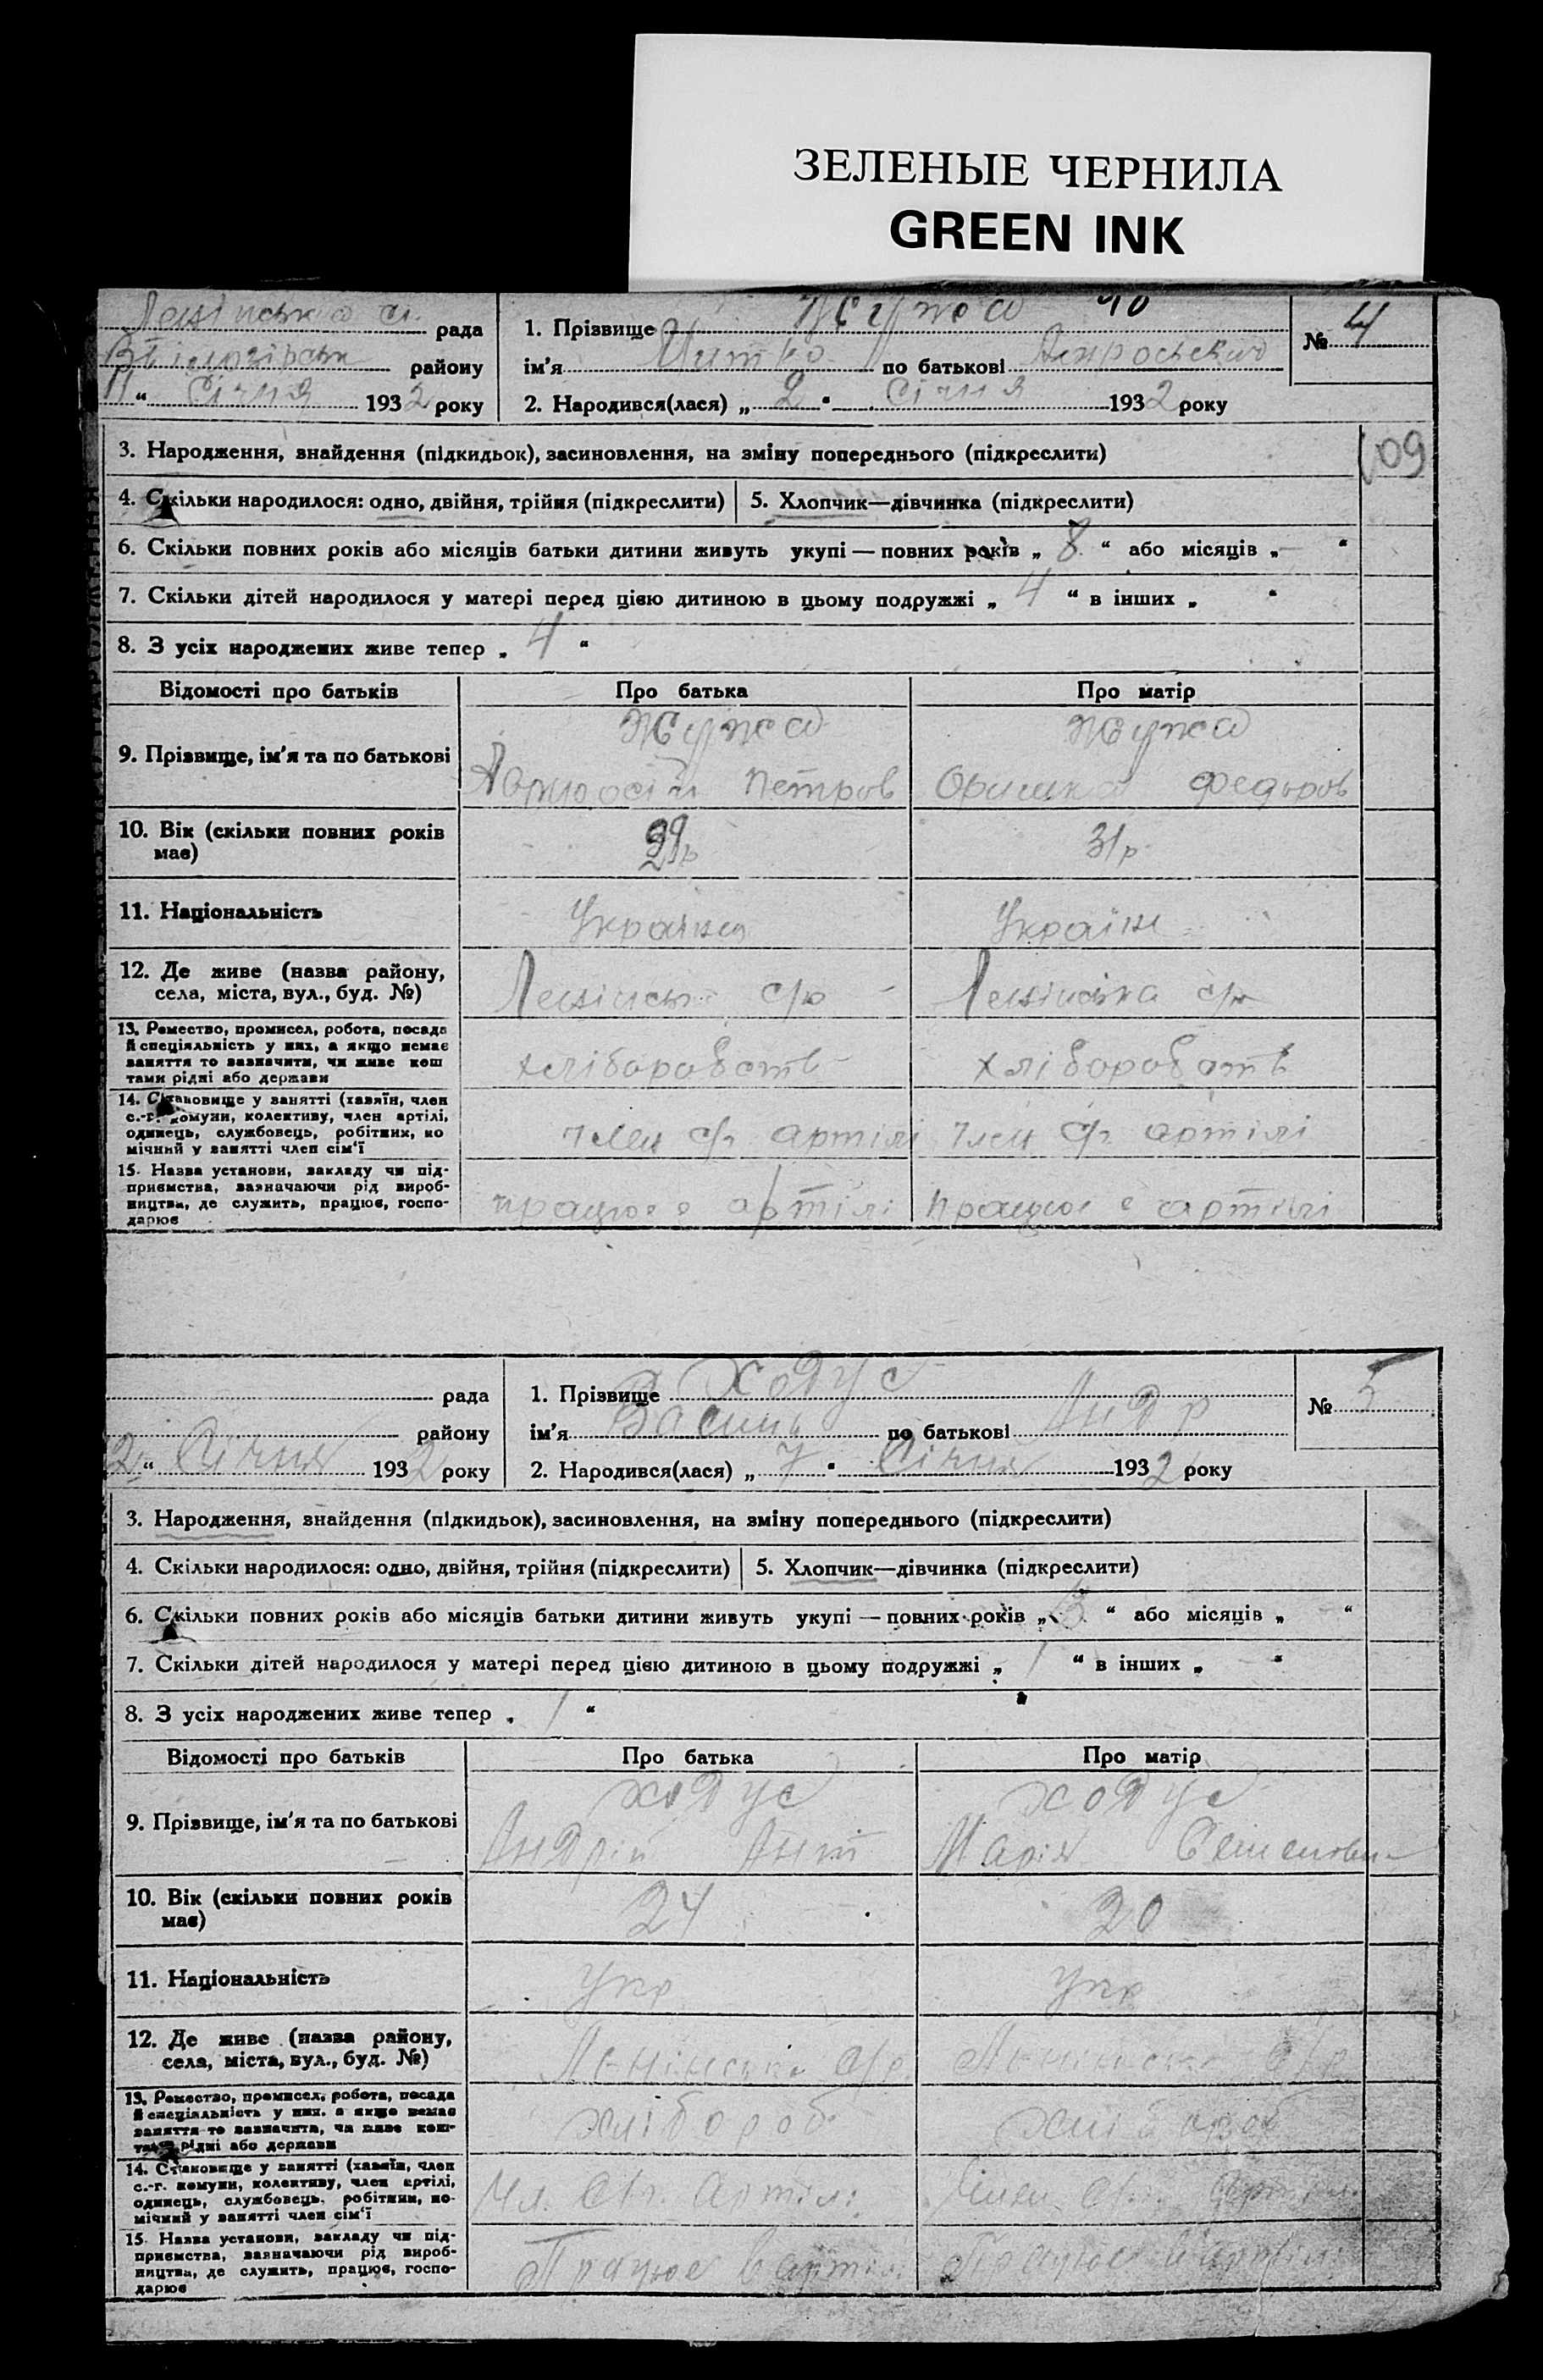 ЗЕЛЕНЫЕ ЧЕРНИЛА
GREEN INK
рада
району
„ Січня 1932 року
1. Прізвище Жужа 40
ім'я по батькові
2. Народився(лася) „ 2 “ Січня 1932 року
№ 4
3. Народження, знайдення (підкидьок), засиновлення, на зміну попереднього (підкреслити)
109
4. Скільки народилося: одно, двійня, трійня (підкреслити) 5. Хлопчик—дівчинка (підкреслити)
6. Скільки повних років або місяців батьки дитини живуть укупі — повних років „ 8 “ або місяців „ “
7. Скільки дітей народилося у матері перед цією дитиною в цьому подружжі „ 4 “ в інших „ “
8. З усіх народжених живе тепер „ 4 “
Відомості про батьків Про батька Про матір
9. Прізвище, ім'я та по батькові
Жужа Жужа
Петров Оришка Федоров
10. Вік (скільки повних років має)
31р
11. Національність
Україн
12. Де живе (назва району, села, міста, вул., буд. №)
Ленінська с/р Ленінська с/р
13. Ремество, промисел, робота, посада
й спеціяльність у них, а якщо немає
заняття то зазначити, чи живе кош
тами рідні або держави
хліборобств хліборобств
14. Становище у занятті (хазяїн, член
с.-г. комуни, колективу, член артілі,
одинець, службовець, робітник, по
мічний у занятті член сім'ї
член с/г артілі член с/г артілі
15. Назва установи, закладу чи під-
приємства, зазначаючи рід вироб-
ництва, де служить, працює, госпо-
дарює
працює в артілі працює в артілі
рада
району
„ Січня 1932 року
1. Прізвище Ходус
ім'я Василь по батькові Андр
2. Народився(лася) „ 7 “ Січня 1932 року
№ 5
3. Народження, знайдення (підкидьок), засиновлення, на зміну попереднього (підкреслити)
4. Скільки народилося: одно, двійня, трійня (підкреслити) 5. Хлопчик—дівчинка (підкреслити)
6. Скільки повних років або місяців батьки дитини живуть укупі — повних років „ “ або місяців „ “
7. Скільки дітей народилося у матері перед цією дитиною в цьому подружжі „ 1 “ в інших „ “
8. З усіх народжених живе тепер „ 1 “
Відомості про батьків Про батька Про матір
9. Прізвище, ім'я та по батькові
Ходус Ходус
Андрій Ант Марія Семеновн
10. Вік (скільки повних років має)
24 20
11. Національність
укр укр
12. Де живе (назва району, села, міста, вул., буд. №)
Ленінська с/р Ленінська с/р
13. Ремество, промисел, робота, посада
й спеціяльність у них, а якщо немає
заняття то зазначити, чи живе кош-
тами рідні або держави
хлібороб хлібороб
14. Становище у занятті (хазяїн, член
с.-г. комуни, колективу, член артілі,
одинець, службовець, робітник, по-
мічний у занятті член сім'ї
Чл. с/г. Артілі Член с/г.
15. Назва установи, закладу чи під-
приємства, зазначаючи рід вироб-
ництва, де служить, працює, госпо-
дарює
Працює в артілі Працює в артілі